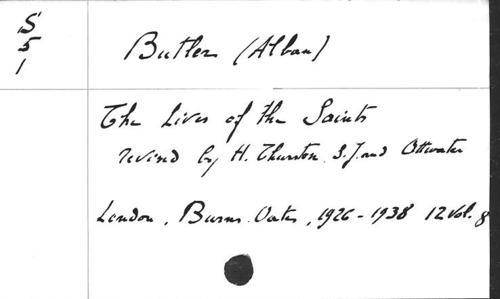 S
5
1
Butler (Alban)
The Lives of the Saints
revised by H. Thurston S.J. and Attwater
London, Burns Oates, 1926-1938 12 vol. 8